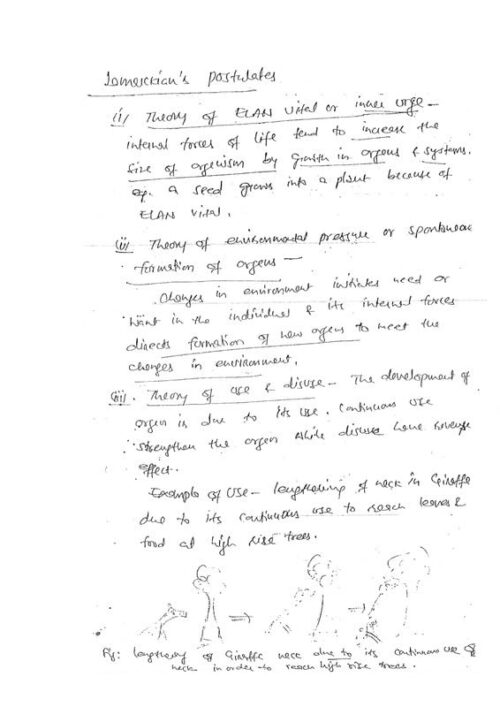 Lamarckian's postulates
(i) Theory of ELAN Vital or inner urge –
internal forces of life tend to increase the
size of organism by growth in organs & systems.
eg. a seed grows into a plant because of
ELAN Vital.
(ii) Theory of environmental pressure or spontaneous
formation of organs –
Changes in environment initiates need or
want in the individual & its internal forces
directs formation of new organs to meet the
changes in environment.
(iii). Theory of use & disuse – The development of
organ is due to its use. Continuous use
strengthen the organ while disuse have reverse
effect.
Example of use – lengthening of neck in Giraffe
due to its continuous use to reach leaves &
food at high rise trees.
Fig: lengthening of Giraffe neck due to its continuous use of
neck in order to reach high rise trees.